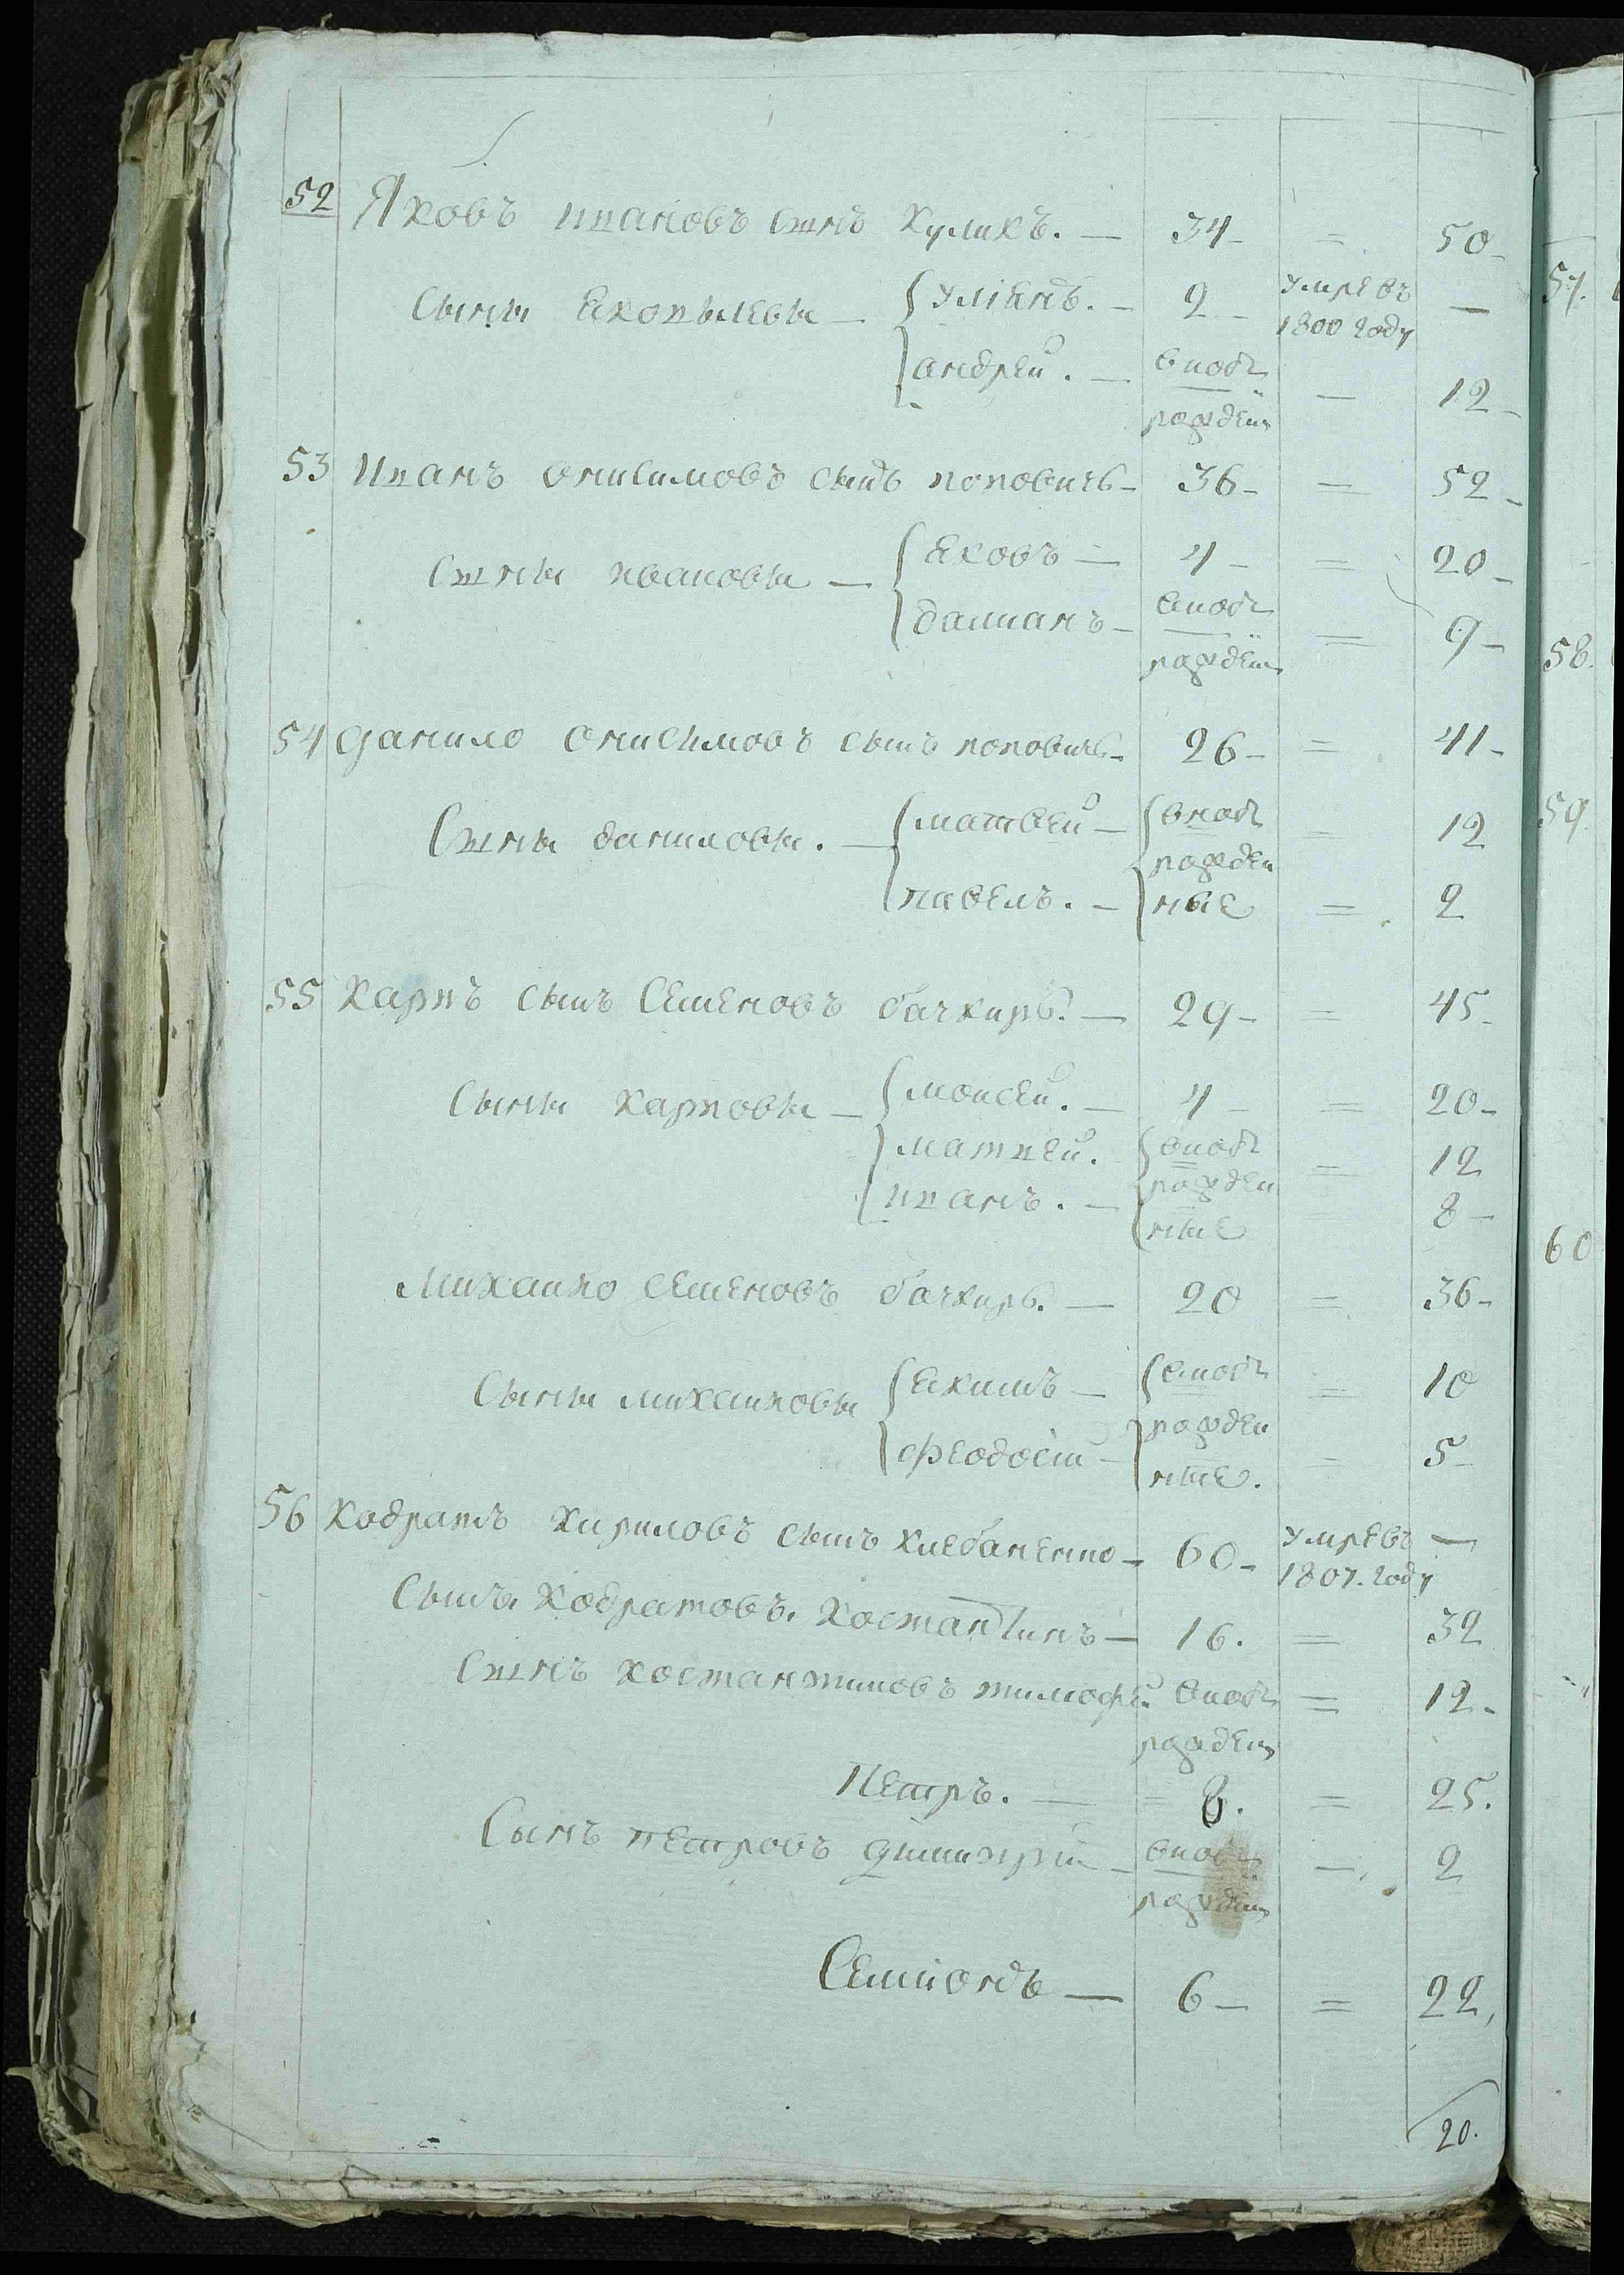 52 Яковъ ивановъ сынъ куликъ. — 34 — = 50 —
Сыны Яковлевы — уліянъ. — 2 — умре въ 1800 году —
андрей. — вновь рожден — 12 —
53 иванъ онисимовъ сынъ поповичъ — 36 — = 52 —
Сыны ивановы — Яковъ — 4 — = 20 —
дамианъ — вновь рожден = 9 —
54 данило онисимовъ сынъ поповичъ — 26 — = 41 —
Сыны даниловы. — матвей — вновь = 12
рожден
павелъ. — ные = 2
55 карпъ сынъ Семеновъ бачкиръ. — 29 — = 45 —
Сыны карповы — моисей. — 4 — = 20 —
матвей. вновь = 12
рожден
иванъ. — ные = 8 —
Михаило Семеновъ бачкиръ. — 20 = 36 —
Сыны михаиловы Якимъ — вновь = 10
рожден
феодосій — ные. = 5 —
56 кодратъ кириловъ сынъ — 60 — умре въ —
1807. году
Сынъ кодратовъ. костантинъ — 16. = 32
Сынъ костантиновъ тимофей вновь = 12 —
рожден
Петръ. — = 8. = 25.
Сынъ петровъ димитрій — вновь — 2
рожден
Семионъ — 6 — = 22,
20.
57.
58.
59
60